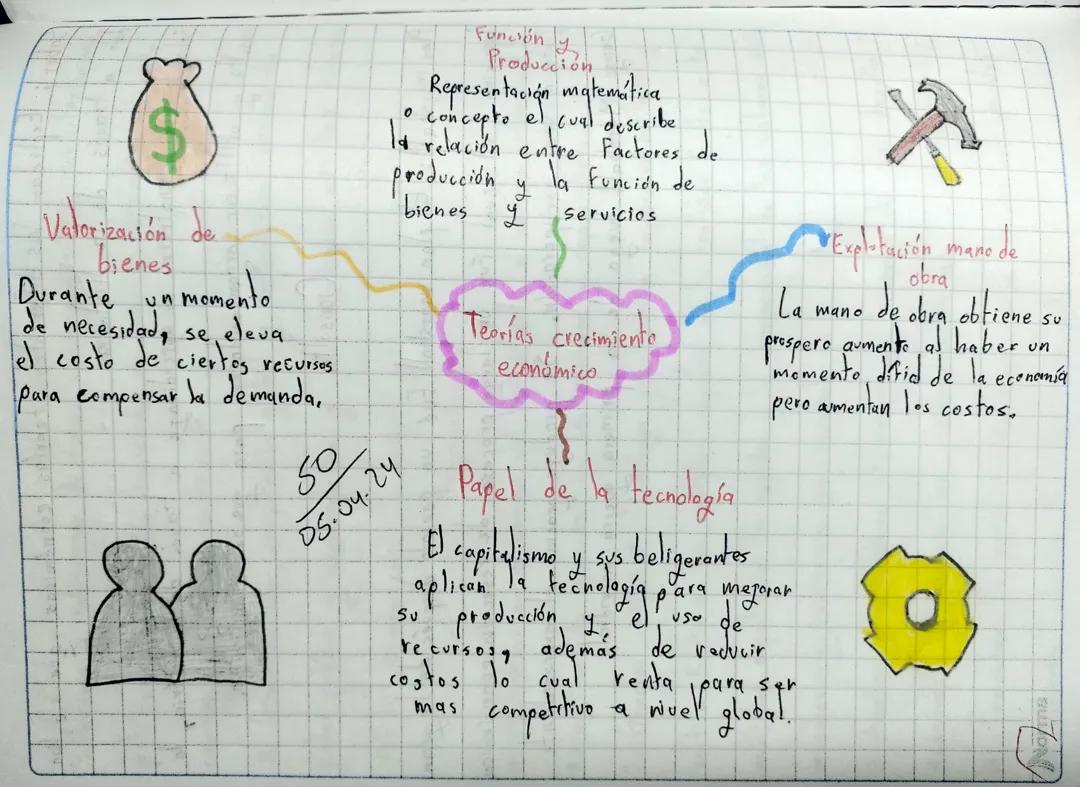 Función y
Producción
Representación matemática
o concepto el cual describe
la relación entre factores de
producción y la función de
bienes y servicios
Valorización de
bienes
Durante un momento
de necesidad, se eleva
el costo de ciertos recursos
para compensar la demanda.
Teorías crecimiento
económico
Explotación mano de
obra
La mano de obra obtiene su
prospero aumento al haber un
momento difícil de la economía
pero aumentan los costos.
50
05.04.24
Papel de la tecnología
El capitalismo y sus beligerantes
aplican la tecnología para mejorar
su producción y el uso de
recursos, además de reducir
costos lo cual renta para ser
mas competitivo a nivel global.
Norma